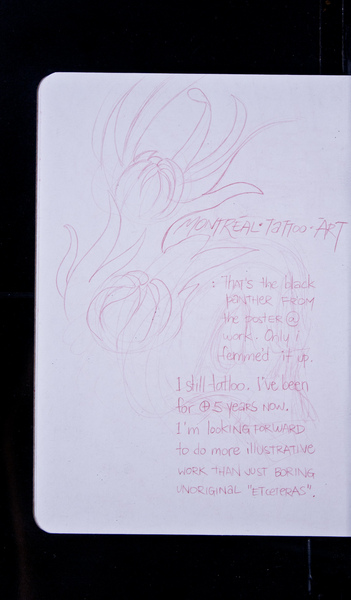 MONTRÉAL·TATTOO·ART
: THAT'S the black
PANTHER FROM
the POSTER @
work. Only i
femme'd it up.
I still tattoo. I've been
for ⊕ 5 years now.
I'm looking FORWARD
to do more illUSTRATIVE
WORK THAN JUST BORING
UNORIGINAL "ETCETERAS".